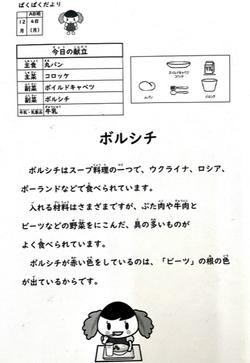 ぱくぱくだより
12月 4日(月) A献立
今日の献立
主食 丸パン
主菜 コロッケ
副菜 ボイルドキャベツ
副菜 ボルシチ
牛乳・乳製品 牛乳
ボイルドキャベツ
コロッケ
牛乳
パン
ボルシチ
ボルシチ
ボルシチはスープ料理の一つで、ウクライナ、ロシア、
ポーランドなどで食べられています。
入れる材料はさまざまですが、ぶた肉や牛肉と
ビーツなどの野菜をにこんだ、具の多いものが
よく食べられています。
ボルシチが赤い色をしているのは、「ビーツ」の根の色
が出ているからです。